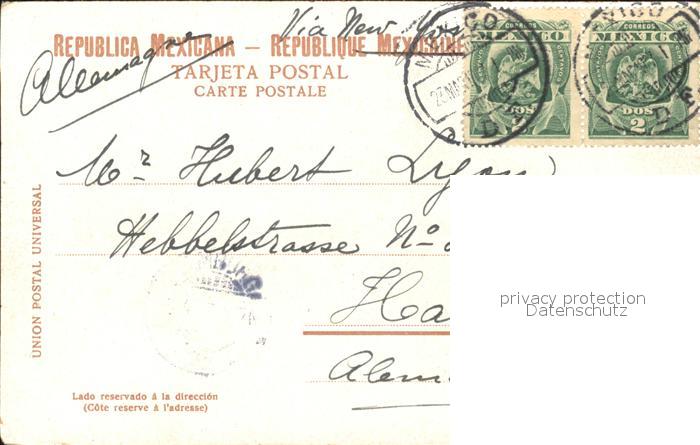 Via New
Allemagne
REPUBLICA MEXICANA — REPUBLIQUE MEXICAINE
TARJETA POSTAL
CARTE POSTALE
CORREOS
MEXICO
DOS 2
CORREOS
MEXICO
DOS 2
Mr Hubert
Hebbelstrasse No
Ha
Alem
UNION POSTAL UNIVERSAL
privacy protection
Datenschutz
Lado reservado á la dirección
(Côte reserve à l'adresse)